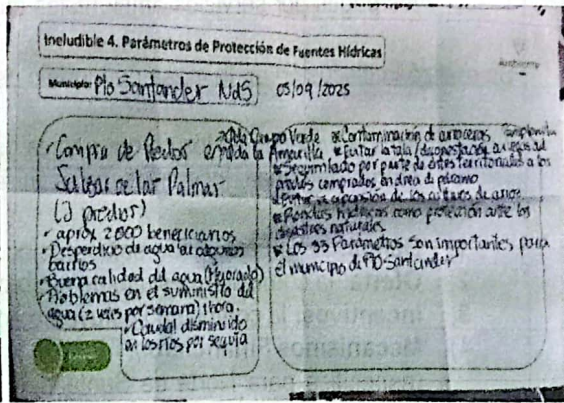 Ineludible 4. Parámetros de Protección de Fuentes Hídricas
Municipio: Pto Santander NdS 05/09/2025
- Compra de Predios
Palmar
- aprox 2000 beneficiarios
- Desperdicio de agua en algunos
barrios
- Buena calidad del agua (Mejorado)
- Problemas en el suministro del
agua (2 veces por semana) 1 hora.
- Caudal disminuido
en los ríos por sequia
Campo Verde * Contaminación de arroceras
la Amarilla * Evitar la tala/deforestación
* Seguimiento por parte de entes territoriales a los
predios comprados en área de páramo
* Evitar expansión de los cultivos de arroz
* Rondas hídricas como protección ante los
desastres naturales
* Los 33 Parámetros son importantes para
el municipio de Pto Santander